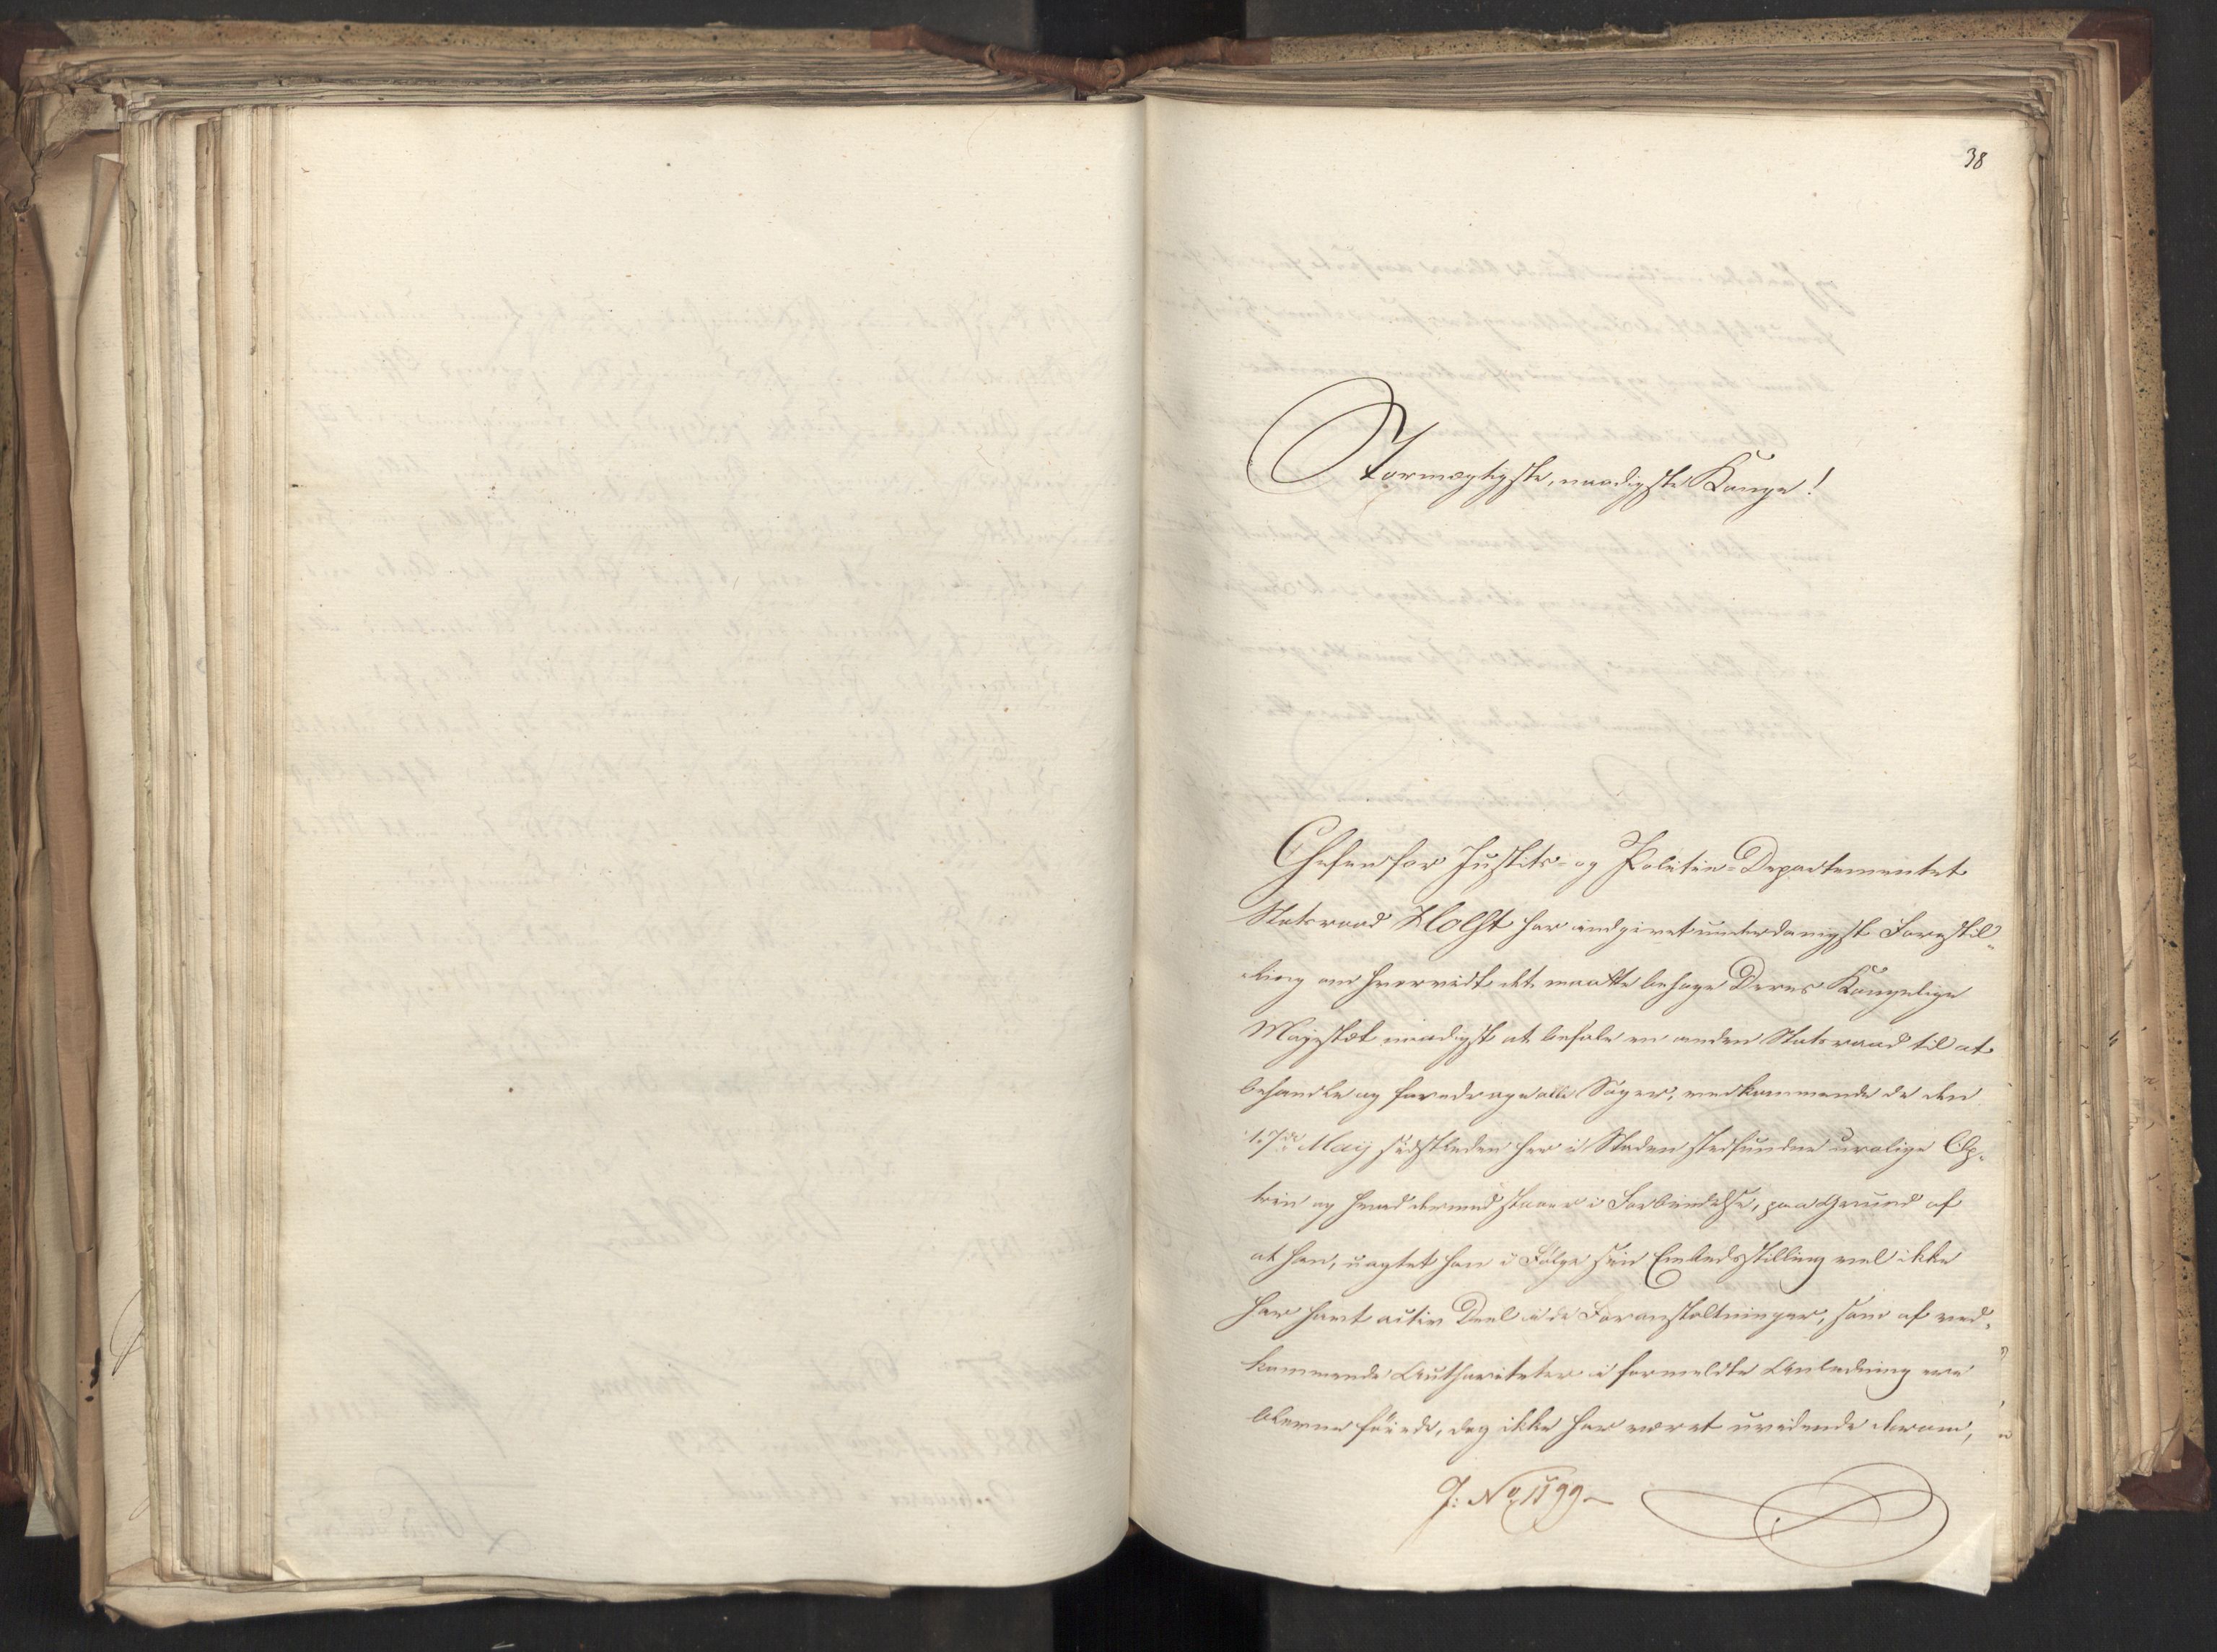 38
Stormægtigste, naadigste Konge!
Chefen for Justits- og Politie-Departementet
Statsraad Holst har indgivet underdanigst Forestil-
ling om hvorvidt det maatte behage Deres Kongelige
Majestæt naadigst at befale en anden Statsraad til at
behandle og foredrage alle Sager, vedkommende de den
17de Maij sidstleden her i Staden stedfundne urolige Op-
trin og hvad dermed staaer i Forbindelse, paa Grund af
at han, uagtet han i Følge sin Embedsstilling vel ikke
har havt activ Deel i de Foranstaltninger, som af ved-
kommende Authoriteter i formeldte Anledning ere
blevne føiede, dog ikke har været uvidende derom,
J: No 1599